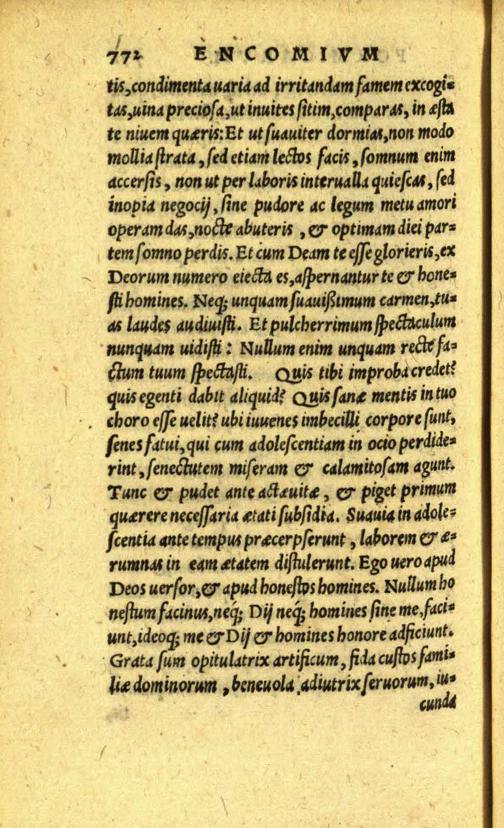 772 ENCOMIVM
tis, condimenta uaria ad irritandam famem excogi=
tas, uina preciosa, ut inuites sitim, comparas, in æsta
te niuem quæris: Et ut suauiter dormias, non modo
mollia strata, sed etiam lectos facis, somnum enim
accersis, non ut per laboris interualla quiescas, sed
inopia negocij, sine pudore ac legum metu amori
operam das, nocte abuteris, & optimam diei par=
tem somno perdis. Et cum Deam te esse glorieris, ex
Deorum numero eiecta es, aspernantur te & hone=
sti homines. Neq; unquam suauißimum carmen, tu=
as laudes audiuisti. Et pulcherrimum spectaculum
nunquam uidisti: Nullum enim unquam recte fa=
ctum tuum spectasti. Quis tibi improba credet?
quis egenti dabit aliquid? Quis sanæ mentis in tuo
choro esse uelit? ubi iuuenes imbecilli corpore sunt,
senes fatui, qui cum adolescentiam in ocio perdide=
rint, senectutem miseram & calamitosam agunt.
Tunc & pudet ante actæ uitæ, & piget primum
quærere necessaria ætati subsidia. Suauia in adole=
scentia ante tempus præcerpserunt, laborem & æ=
rumnas in eam ætatem distulerunt. Ego uero apud
Deos uersor, & apud honestos homines. Nullum ho
nestum facinus, neq; Dij neq; homines sine me, faci=
unt, ideoq; me & Dij & homines honore adficiunt.
Grata sum opitulatrix artificum, fida custos fami=
liæ dominorum, beneuola adiutrix seruorum, iu=
cunda